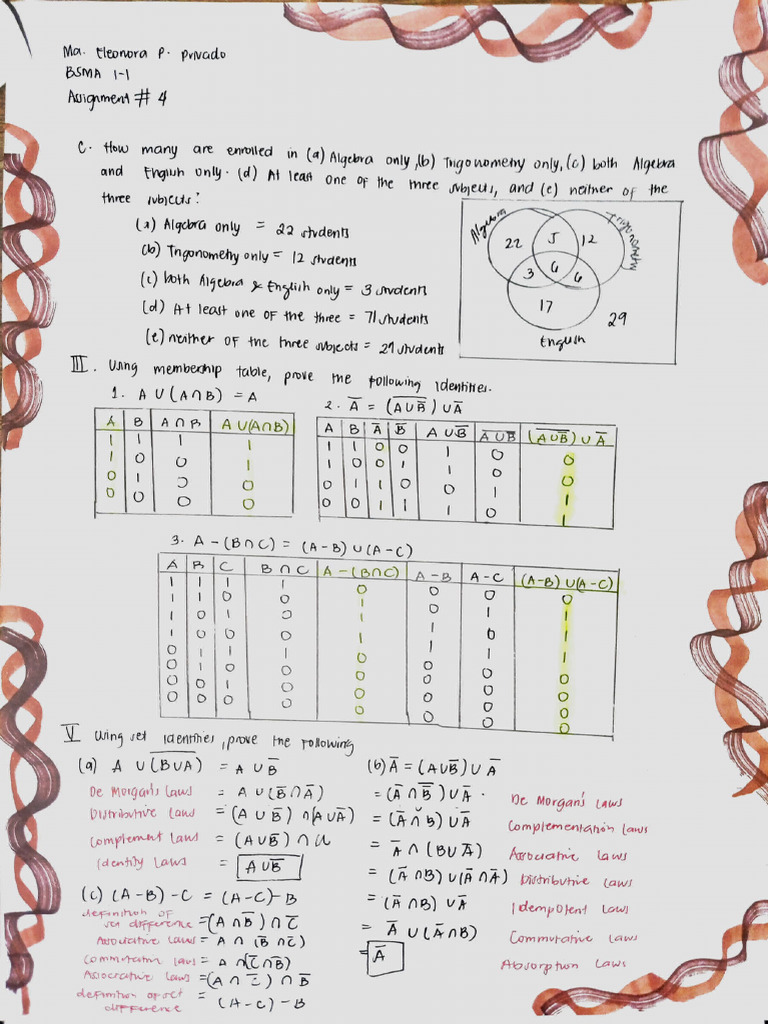 Ma. Eleonora P. Privado
BSMA 1-1
Assignment # 4
C. How many are enrolled in (a) Algebra only, (b) Trigonometry only, (c) both Algebra
and English only. (d) At least one of the three subjects, and (e) neither of the
three subjects?
(a) Algebra only = 22 students
(b) Trigonometry only = 12 students
(c) both Algebra & English only = 3 students
(d) At least one of the three = 71 students
(e) neither of the three subjects = 29 students
Algebra
Trigonometry
22 5 12
3 6 6
17
29
English
III. Using membership table, prove the following identities.
1. A ∪ (A∩B) = A
A B A∩B A∪(A∩B)
1 1 1 1
1 0 0 1
0 1 0 0
0 0 0 0
2. A̅ = (A̅∪̅B̅̅) ∪ A̅
A B A̅ B̅ A∪B̅ A̅∪̅B̅̅ (A̅∪̅B̅̅) ∪ A̅
1 1 0 0 1 0 0
1 0 0 1 1 0 0
0 1 1 0 0 1 1
0 0 1 1 1 0 1
3. A - (B∩C) = (A-B) ∪ (A-C)
A B C B∩C A-(B∩C) A-B A-C (A-B)∪(A-C)
1 1 1 1 0 0 0 0
1 1 0 0 1 0 1 1
1 0 1 0 1 1 0 1
1 0 0 0 1 1 1 1
0 1 1 1 0 0 0 0
0 1 0 0 0 0 0 0
0 0 1 0 0 0 0 0
0 0 0 0 0 0 0 0
V Using set identities, prove the following
(a) A ∪ (B̅∪̅A̅) = A∪B̅
De Morgan's Laws = A ∪ (B̅∩A̅)
Distributive Laws = (A∪B̅) ∩ (A∪A̅)
Complement Laws = (A∪B̅) ∩ U
Identity Laws = A∪B̅
(b) A̅ = (A∪B̅) ∪ A̅
= (A̅ ∩ B̅̅) ∪ A̅ De Morgan's Laws
= (A̅∩B) ∪ A̅ Complementation Laws
= A̅ ∩ (B∪A̅) Associative Laws
= (A̅∩B) ∪ (A̅∩A̅) Distributive Laws
= (A̅∩B) ∪ A̅ Idempotent Laws
= A̅ ∪ (A̅∩B) Commutative Laws
= A̅ Absorption Laws
(c) (A-B) - C = (A-C) - B
definition of
set difference = (A∩B̅) ∩ C̅
Associative Laws = A ∩ (B̅∩C̅)
Commutative Laws = A ∩ (C̅∩B̅)
Associative Laws = (A ∩ C̅) ∩ B̅
definition of set
difference = (A-C) - B